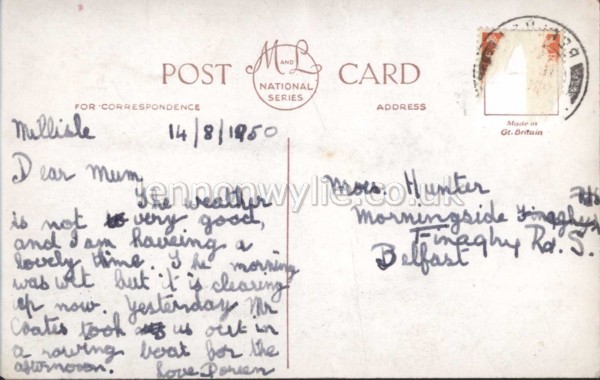 POST CARD
M AND L
NATIONAL
SERIES
FOR CORRESPONDENCE
ADDRESS
Made in
Gt. Britain
Millisle 14/8/1950
Dear Mum,
The weather
is not very good,
and I am haveing a
lovely time. The morning
was wet but it is clearing
up now. Yesterday Mr
Coates took us out in
a rowing boat for the
afternoon. Love Doreen
Mrs. Hunter
Morningside
Finaghy Rd. S.
Belfast
lennonwylie.co.uk